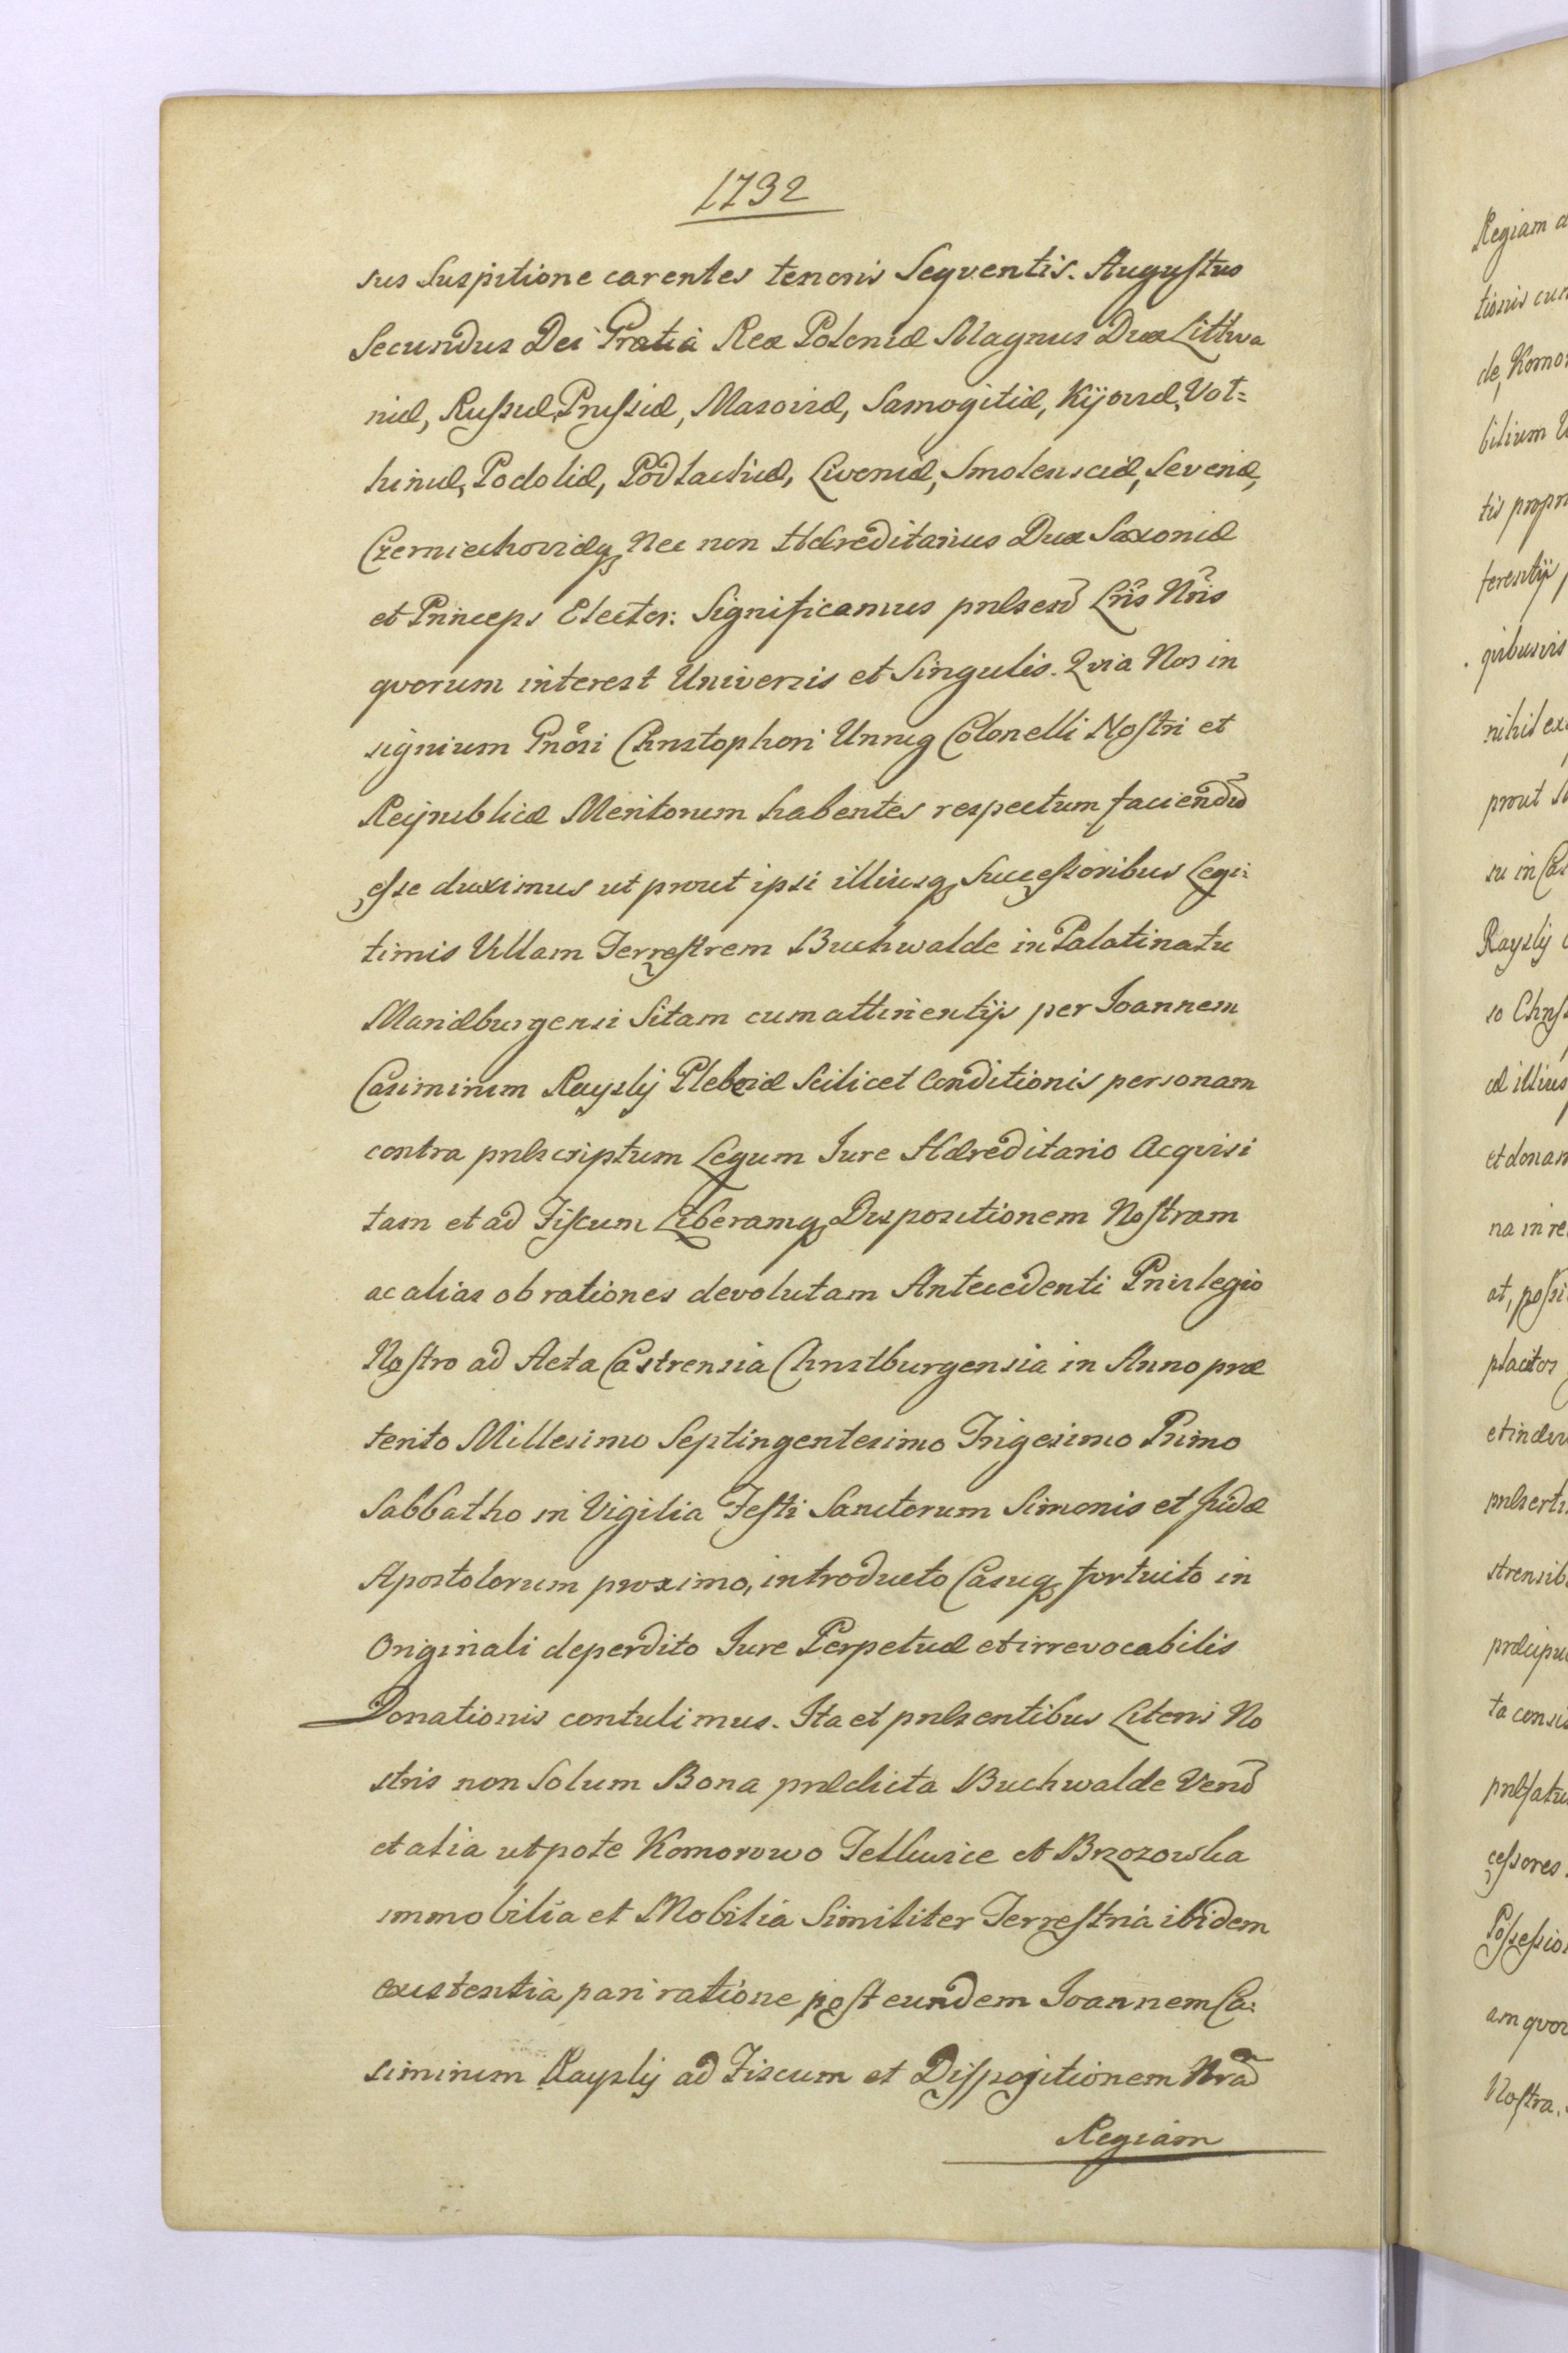 1732
sus Suspitione carentes tenoris Seqventis. Augustus
Secundus Dei Gratia Rex Poloniæ Magnus Dux Lithva
niæ, Russiæ, Prussiæ, Masoviæ, Samogitiæ, Kijoviæ, Vol=
hiniæ, Podoliæ, Podlachiæ, Livoniæ, Smolensciæ, Severiæ,
Czerniechoviæq, Nec non Hæreditarius Dux Saxoniæ
et Princeps Elector. Significamus præsend Lris Nris
qvorum interest Universis et Singulis. Qvia Nos in
signium Gnosi Christophori Unrug Colonelli Nostri et
Reipublicæ Meritorum habentes respectum faciendu
esse duximus ut prout ipsi illiusq Successoribus Legi:
timis Villam Terrestrem Buchwalde in Palatinatu
Mariæburgensi Sitam cum attinentijs per Joannem
Casimirum Rayslij Plebeiæ Scilicet Conditionis personam
contra præscriptum Legum Jure Hæreditario Acqvisi
tam et ad Fiscum Liberamq Dispositionem Nostram
ac alias ob rationes devolutam Antecedenti Privilegio
Nostro ad Acta Castrensia Christburgensia in Anno præ
terito Millesimo Septingentesimo Trigesimo Primo
Sabbatho in Vigilia Festi Sanctorum Simonis et Judæ
Apostolorum proximo, introducto Casuq fortuito in
Originali deperdito Jure Perpetuæ et irrevocabilis
Donationis contulimus. Ita et præsentibus Literis No
stris non Solum Bona prædicta Buchwalde Verũ
et alia utpote Komorowo Telkwice et Brozowka
immobilia et Mobilia Similiter Terrestria ibidem
existentia pari ratione post eundem Joannem Ca:
simirum Rayslij ad Fiscum et Dispositionem Nrã
Regiam
Regiam
tionis
de, Komo
bilium
tis
ferentij
qvibusvis
nihil
prout
su in
Rayslij
so
illius
et donam
na in re
at,
et
strensib
præcipu
ta
cessores
Possessio
am qvor
Nostra.